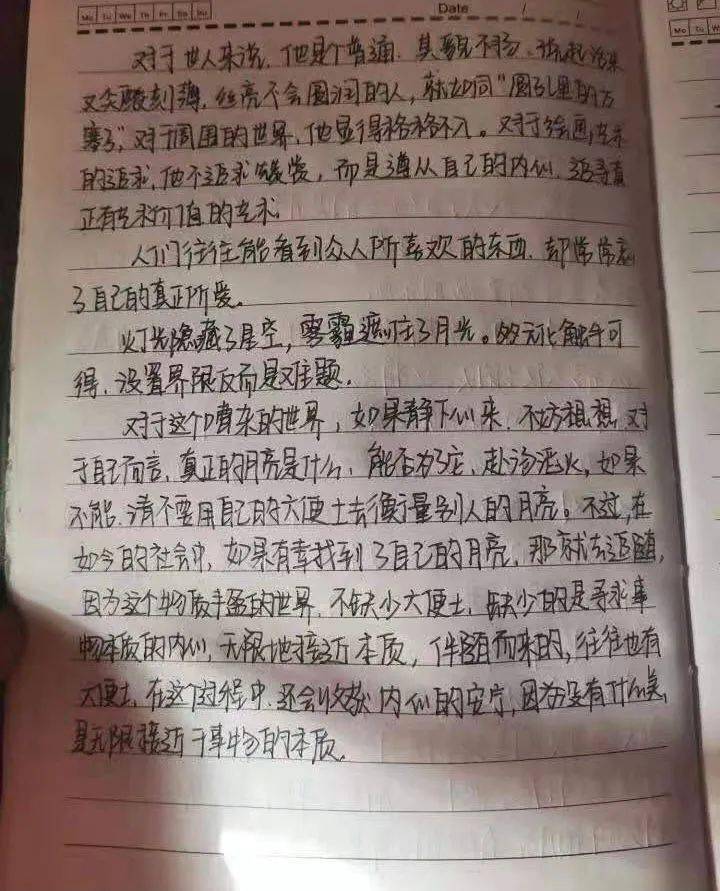 Mo Tu We Th Fr Sa Su Date / /
Mo Tu We
对于世人来说，他是个普通，其貌不扬，说起话来
又尖酸刻薄，丝毫不会圆润的人，就如同“圆孔里的方
塞子”，对于周围的世界，他显得格格不入。对于绘画，艺术
的追求，他不追求赞赏，而是遵从自己的内心，追寻真
正有艺术价值的艺术。
人们往往能看到众人所喜欢的东西，却常常忘
了自己的真正所爱。
灯光隐藏了星空，雾霾遮住了月光。多元化触手可
得，设置界限反而是难题。
对于这个嘈杂的世界，如果静下心来，不妨想想，对
于自己而言，真正的月亮是什么，能否为了它，赴汤蹈火，如果
不能，请不要用自己的六便士去衡量别人的月亮。不过，在
如今的社会中，如果有幸找到了自己的月亮，那就去追随，
因为这个物质丰盈的世界，不缺少六便士，缺少的是寻求事
物本质的内心，无限地接近本质，伴随而来的，往往也有
六便士，在这个过程中，还会收获内心的安宁，因为没有什么美，
是无限接近于事物的本质。